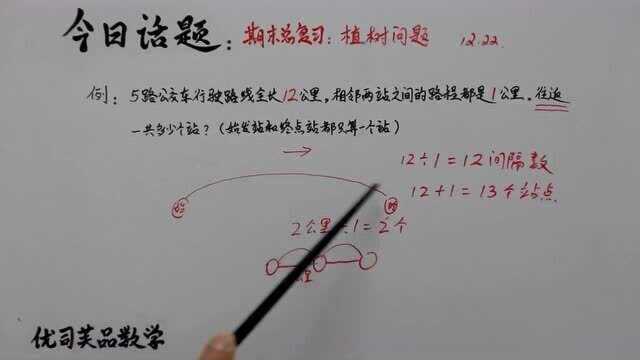 今日话题：期末总复习：植树问题 12.22.
例：5路公交车行驶路线全长12公里，相邻两站之间的路程都是1公里。往返
一共多少个站？（始发站和终点站都只算一个站）
12÷1=12间隔数
12+1=13个站点
始 终
2公里÷1=2个
优司芙品数学